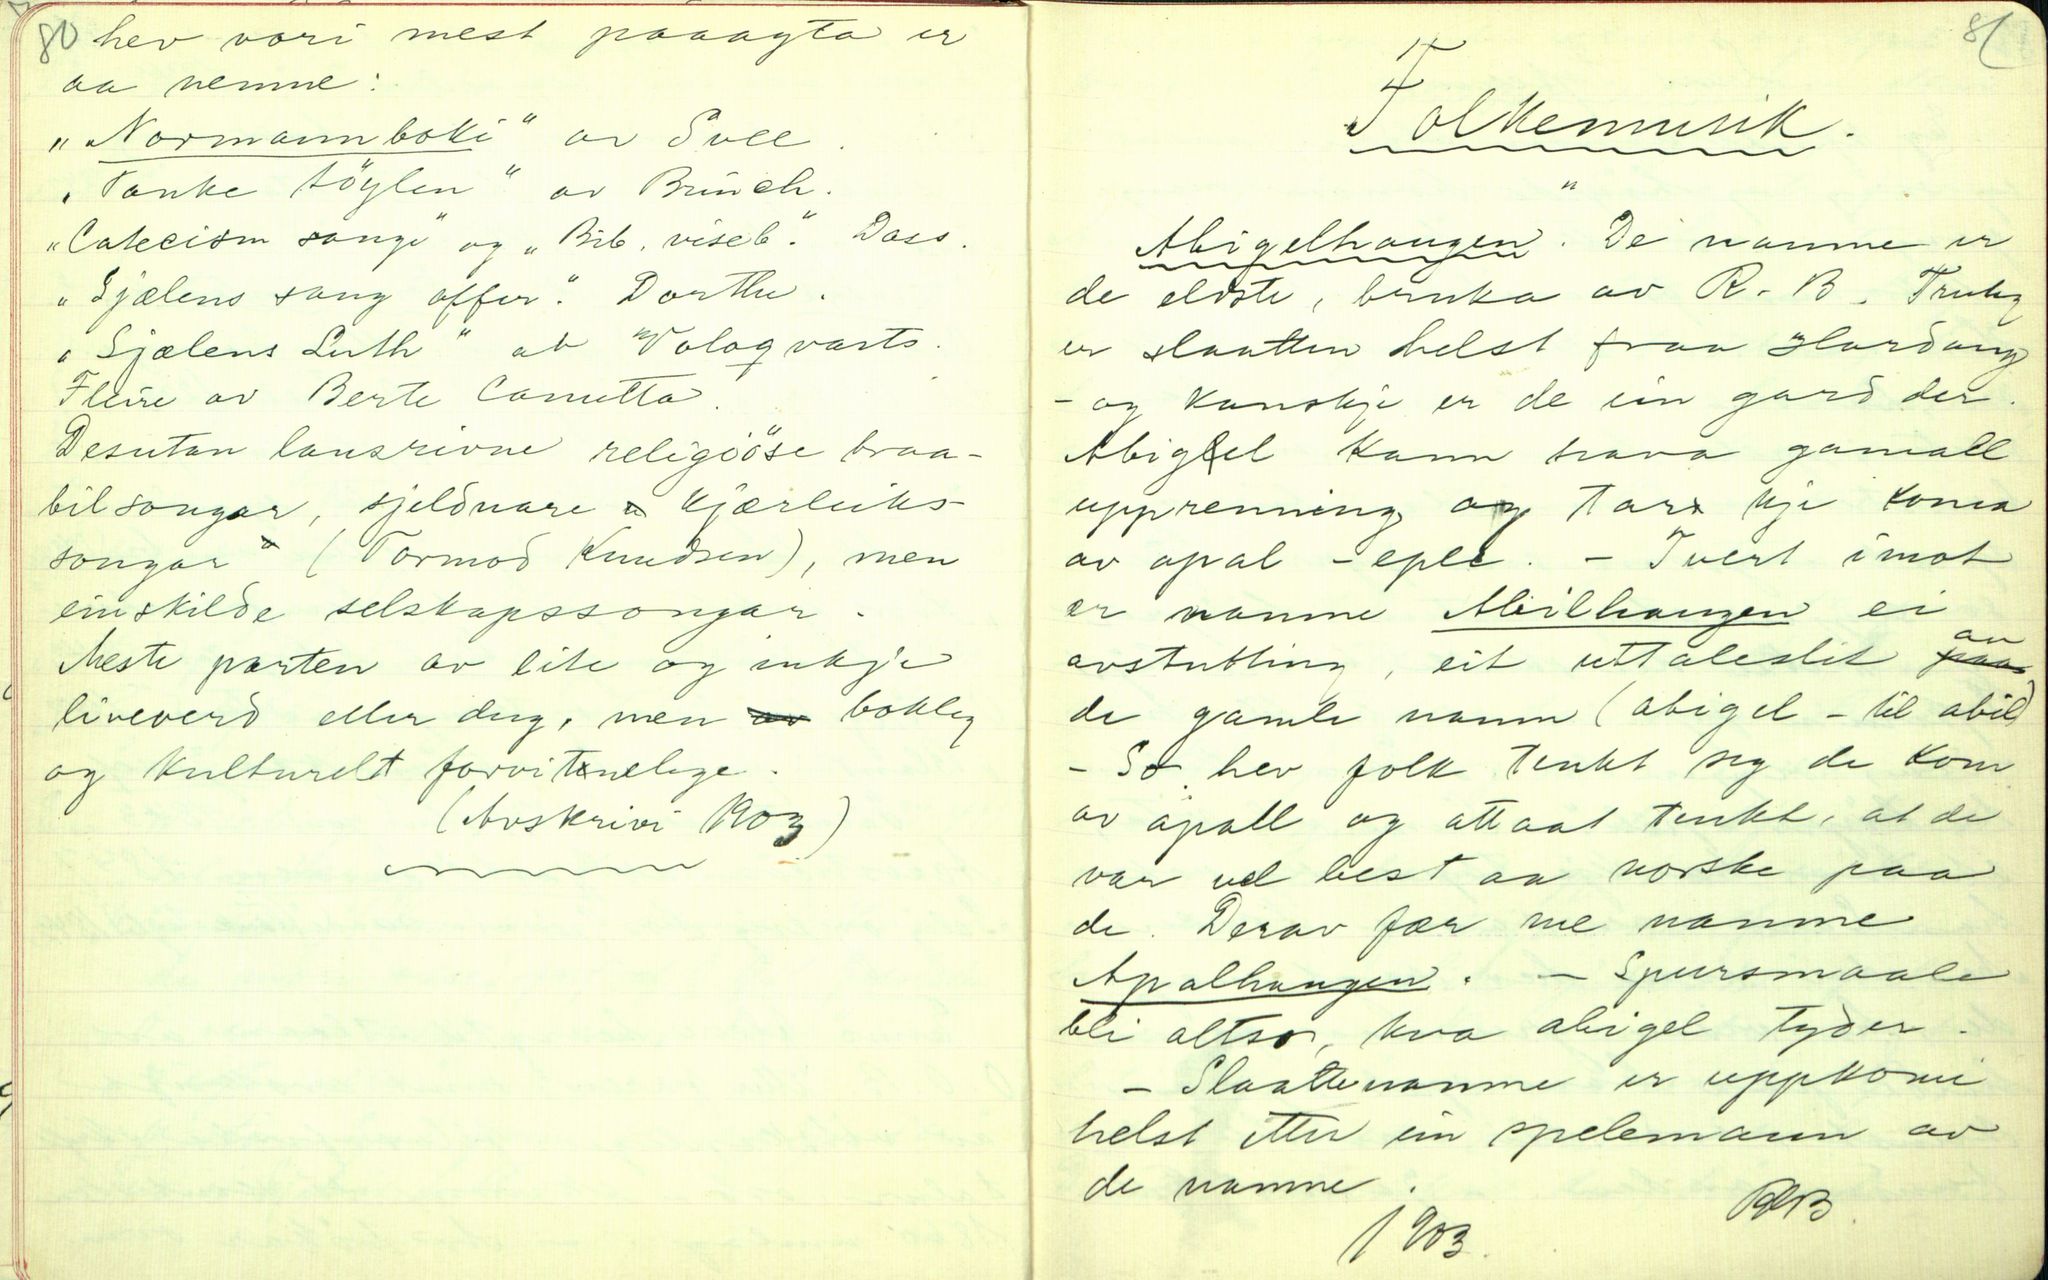 80 hev vori mest paaagta er
aa nemne:
„Normannboki“ av Svee.
„Tanke töylen“ av Brünch.
„Catecism songe“ og „Bib. viseb.“ Dass.
„Sjælens sang offer“. Dorthe.
„Sjælens Luth“ ab Wologvarts.
Fleire av Berte Canutta.
Desutan lausrivne religiööse braa-
bilsongar, sjeldnare kjærleiks-
songar (Tormod Knudsen), men
einskilde selskapssongar.
Meste parten av lite og inkje
liveverd eller dug, men bokleg
og kulturelt forvitnelege.
(Avskrivi 1903)
81
Folkemusik.
„
Abigelhaugen. De namne er
de eldste, bruka av R. B. Truleg
er slaatten helst fraa Hardang
- og kanskje er de ein gard der.
Abigel kann hava gamall
upprenning og tar kje koma
av apal - eple. - Tvert imot
er namne Abilhaugen ei
avstutting, eit uttaleslit av
de gamle namn (abigel - til abil)
- So hev folk tenkt seg de kom
av apall og attaat tenkt, at de
var vel best aa norske paa
de. Derav fær me namne
Apalhaugen. - Spursmaale
bli altso, kva abigel tyder.
- Slaattenamne er uppkomi
helst etter ein spelemann av
de namne.
RB.
1903.